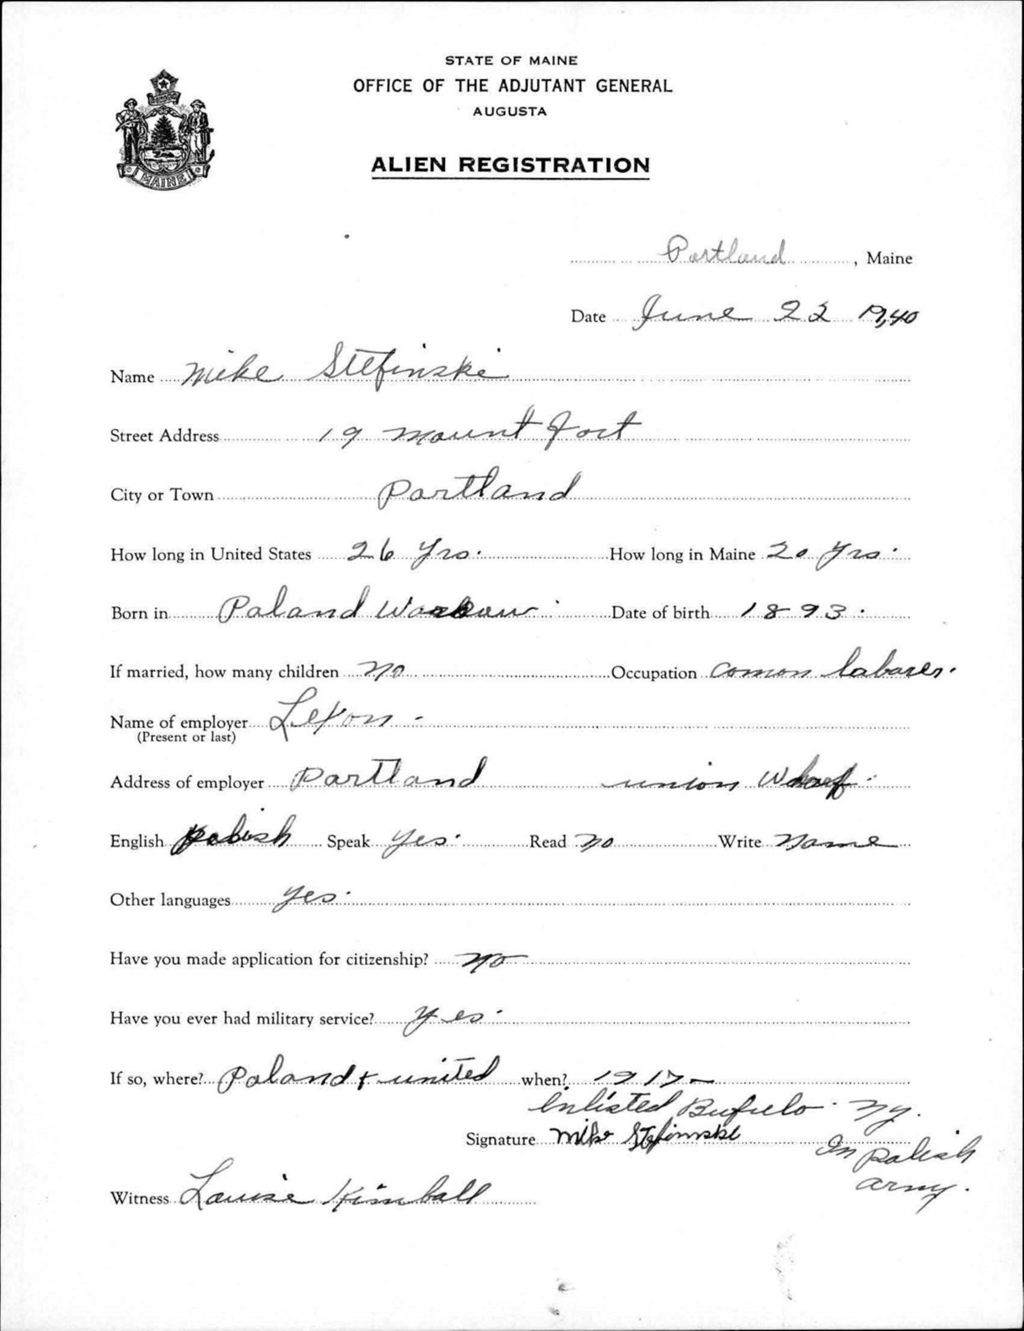 STATE OF MAINE
OFFICE OF THE ADJUTANT GENERAL
AUGUSTA
ALIEN REGISTRATION
MAINE
Portland, Maine
Date June 22 1940
Name Mike Stefinski
Street Address 19 Mount Fort
City or Town Portland
How long in United States 26 Yrs. How long in Maine 20 Yrs.
Born in Poland Warsaw. Date of birth 1893.
If married, how many children No Occupation Comon Laborer.
Name of employer
(Present or last)
Address of employer Portland union Wharf.
English Polish Speak Yes. Read No Write Name
Other languages Yes.
Have you made application for citizenship? No
Have you ever had military service? Yes.
If so, where? Poland + united when? 1917-
Enlisted Bufulo Ny.
Signature Mike Stefinski In Polish
army.
Witness Louise Kimball